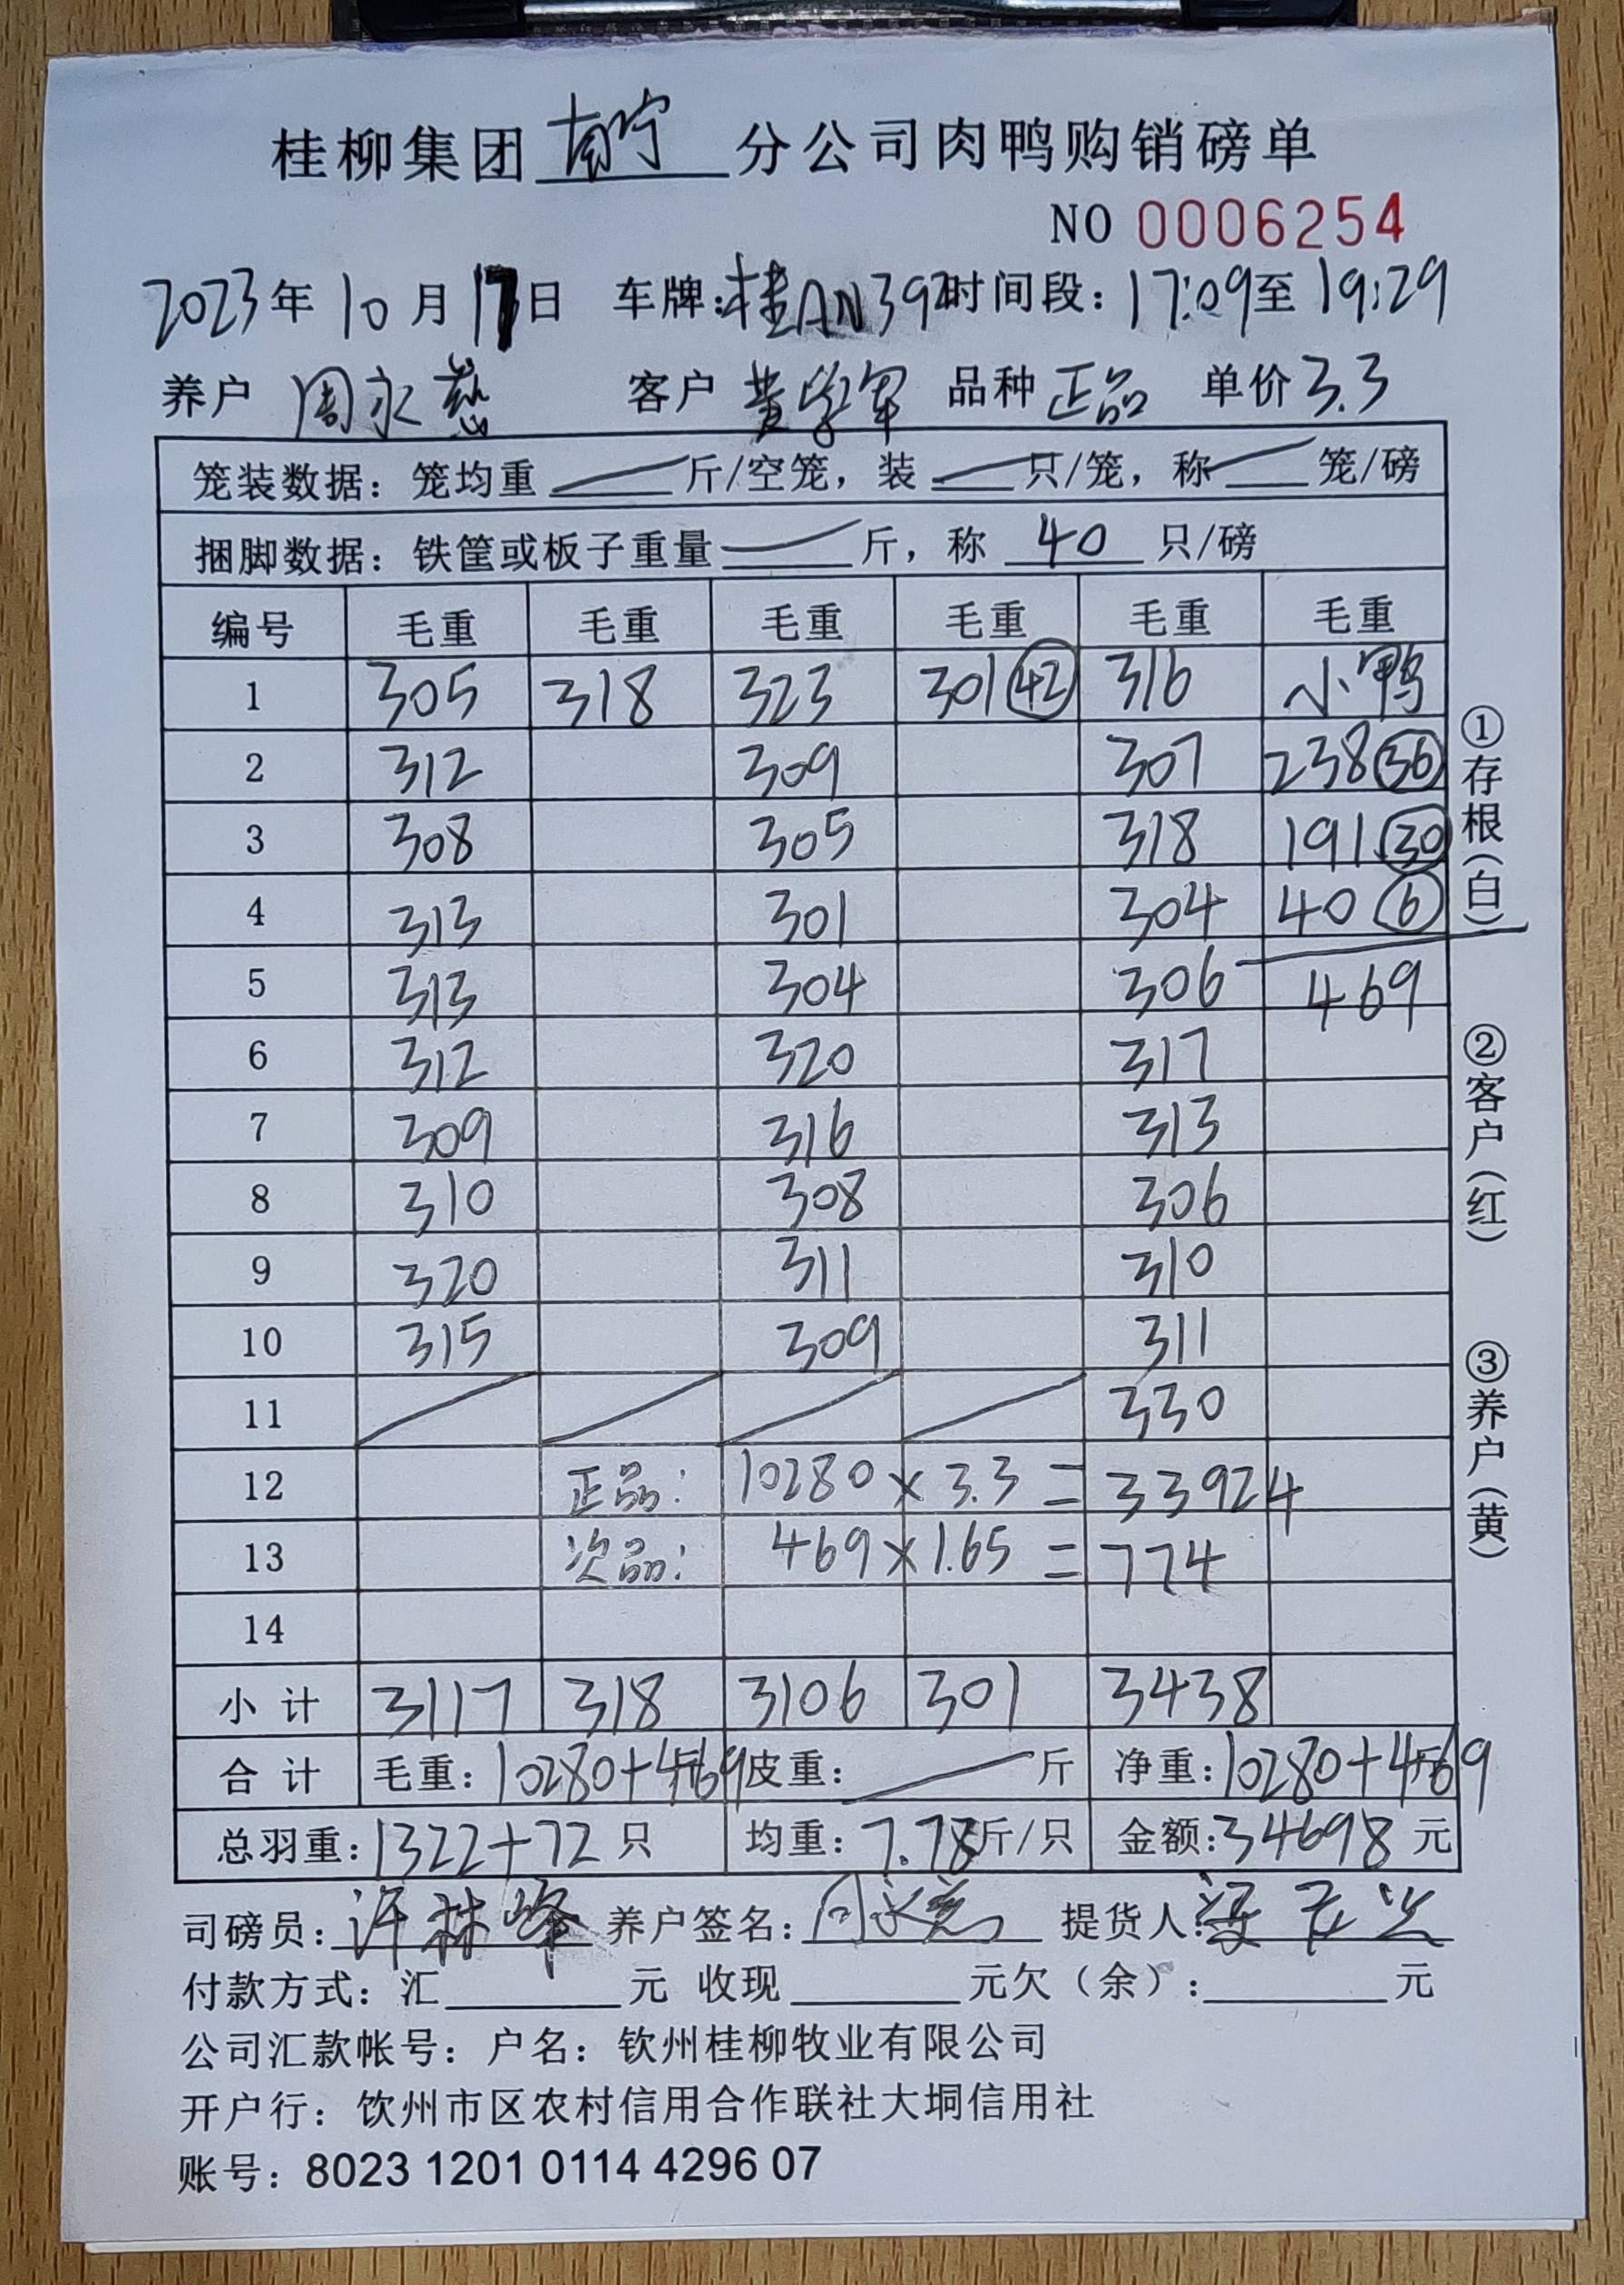 桂柳集团 南宁 分公司肉鸭购销磅单
NO 0006254
2023年10月17日 车牌:桂AN392 时间段:17:09至19:29
养户 周永慈 客户 黄学军 品种 正品 单价 3.3
笼装数据:笼均重 斤/空笼,装 只/笼,称 笼/磅
捆脚数据:铁筐或板子重量 斤,称 40 只/磅
编号 毛重 毛重 毛重 毛重 毛重 毛重
1 305 318 323 301 42 316 小鸭
2 312 309 307 238 36
3 308 305 318 191 30
4 313 301 304 40 6
5 313 304 306 469
6 312 320 317
7 309 316 313
8 310 308 306
9 320 311 310
10 315 309 311
11 330
12 正品: 10280 × 3.3 = 33924
13 次品: 469 × 1.65 = 774
14
小计 3117 318 3106 301 3438
合计 毛重:10280+469 皮重: 斤 净重:10280+469
总羽重:1322+72只 均重:7.78斤/只 金额:34698元
司磅员:许林峰 养户签名:周永慈 提货人:
付款方式:汇 元 收现 元欠(余): 元
公司汇款帐号:户名:钦州桂柳牧业有限公司
开户行:饮州市区农村信用合作联社大垌信用社
账号:8023 1201 0114 4296 07
①存根(白)
②客户(红)
③养户(黄)